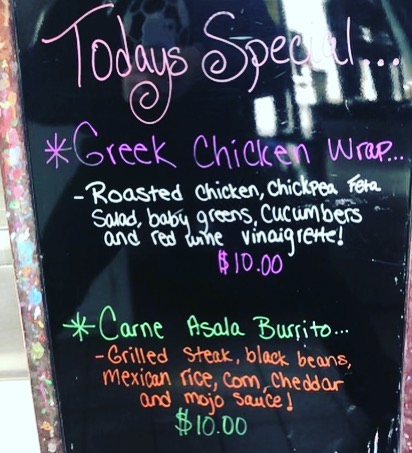 Todays Special...
*Greek Chicken Wrap...
-Roasted chicken, chickpea Feta
Salad, baby greens, cucumbers
and red wine vinaigrette!
$10.00
*Carne Asala Burrito...
-Grilled steak, black beans,
mexican rice, corn, cheddar
and mojo sauce!
$10.00